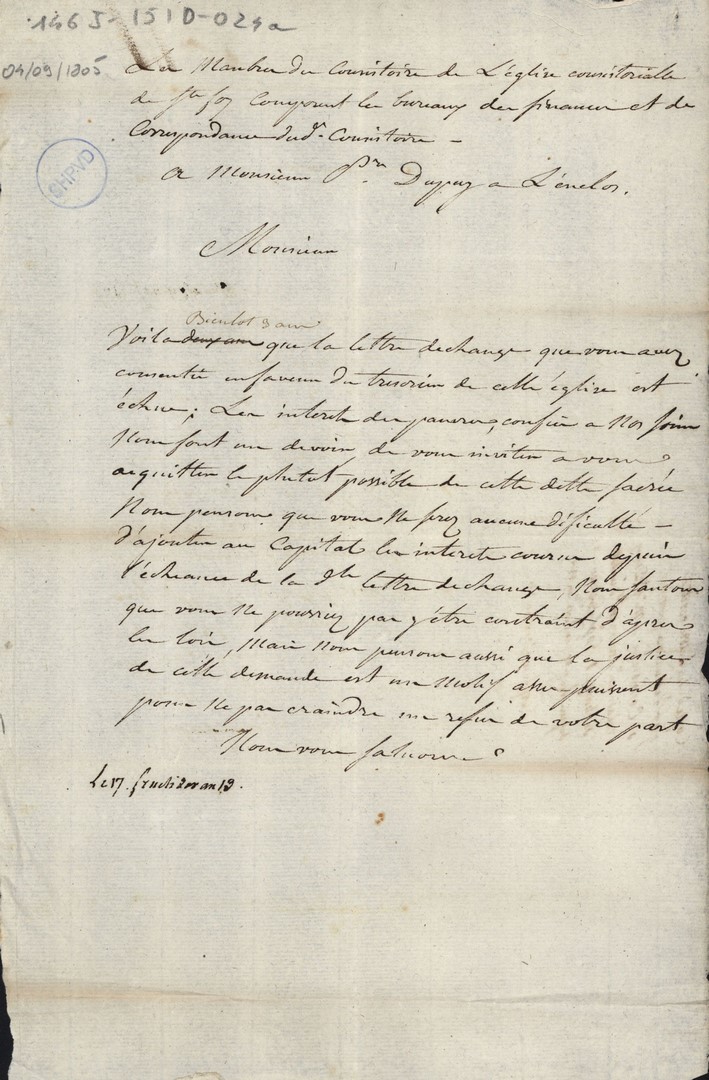 146J-151D-024a
04/09/1805
Les Membres du Consistoire de L'église consistorialle
de Ste foy Composent les bureaux des finances et de
Correspondance dudt Consistoire —
a Monsieur Pre Dupuy a L'enclos.
SHPVD
Monsieur
Bientot 3 ans
Voila deux ans que la lettre dechange que vous avez
consentie enfaveur du tresorier de cette église est
échue; Les interets des pauvres, confiés a nos soins
nous font un devoir, de vous inviter a vous
acquitter le plutot possible de cette dette sacrée
Nous pensons que vous ne ferez aucune dificulté —
d'ajouter au Capital les interets courus depuis
l'écheance de la dte lettre dechange, Nous santons
que vous ne pourriez pas y être contraint d'apres
les loix, Mais nous pensons aussi que la justice
de cette demande est un motif assez puissent
pour ne pas craindre un refus de votre part
Nous vous saluons
Le 17. fructidor an 13.